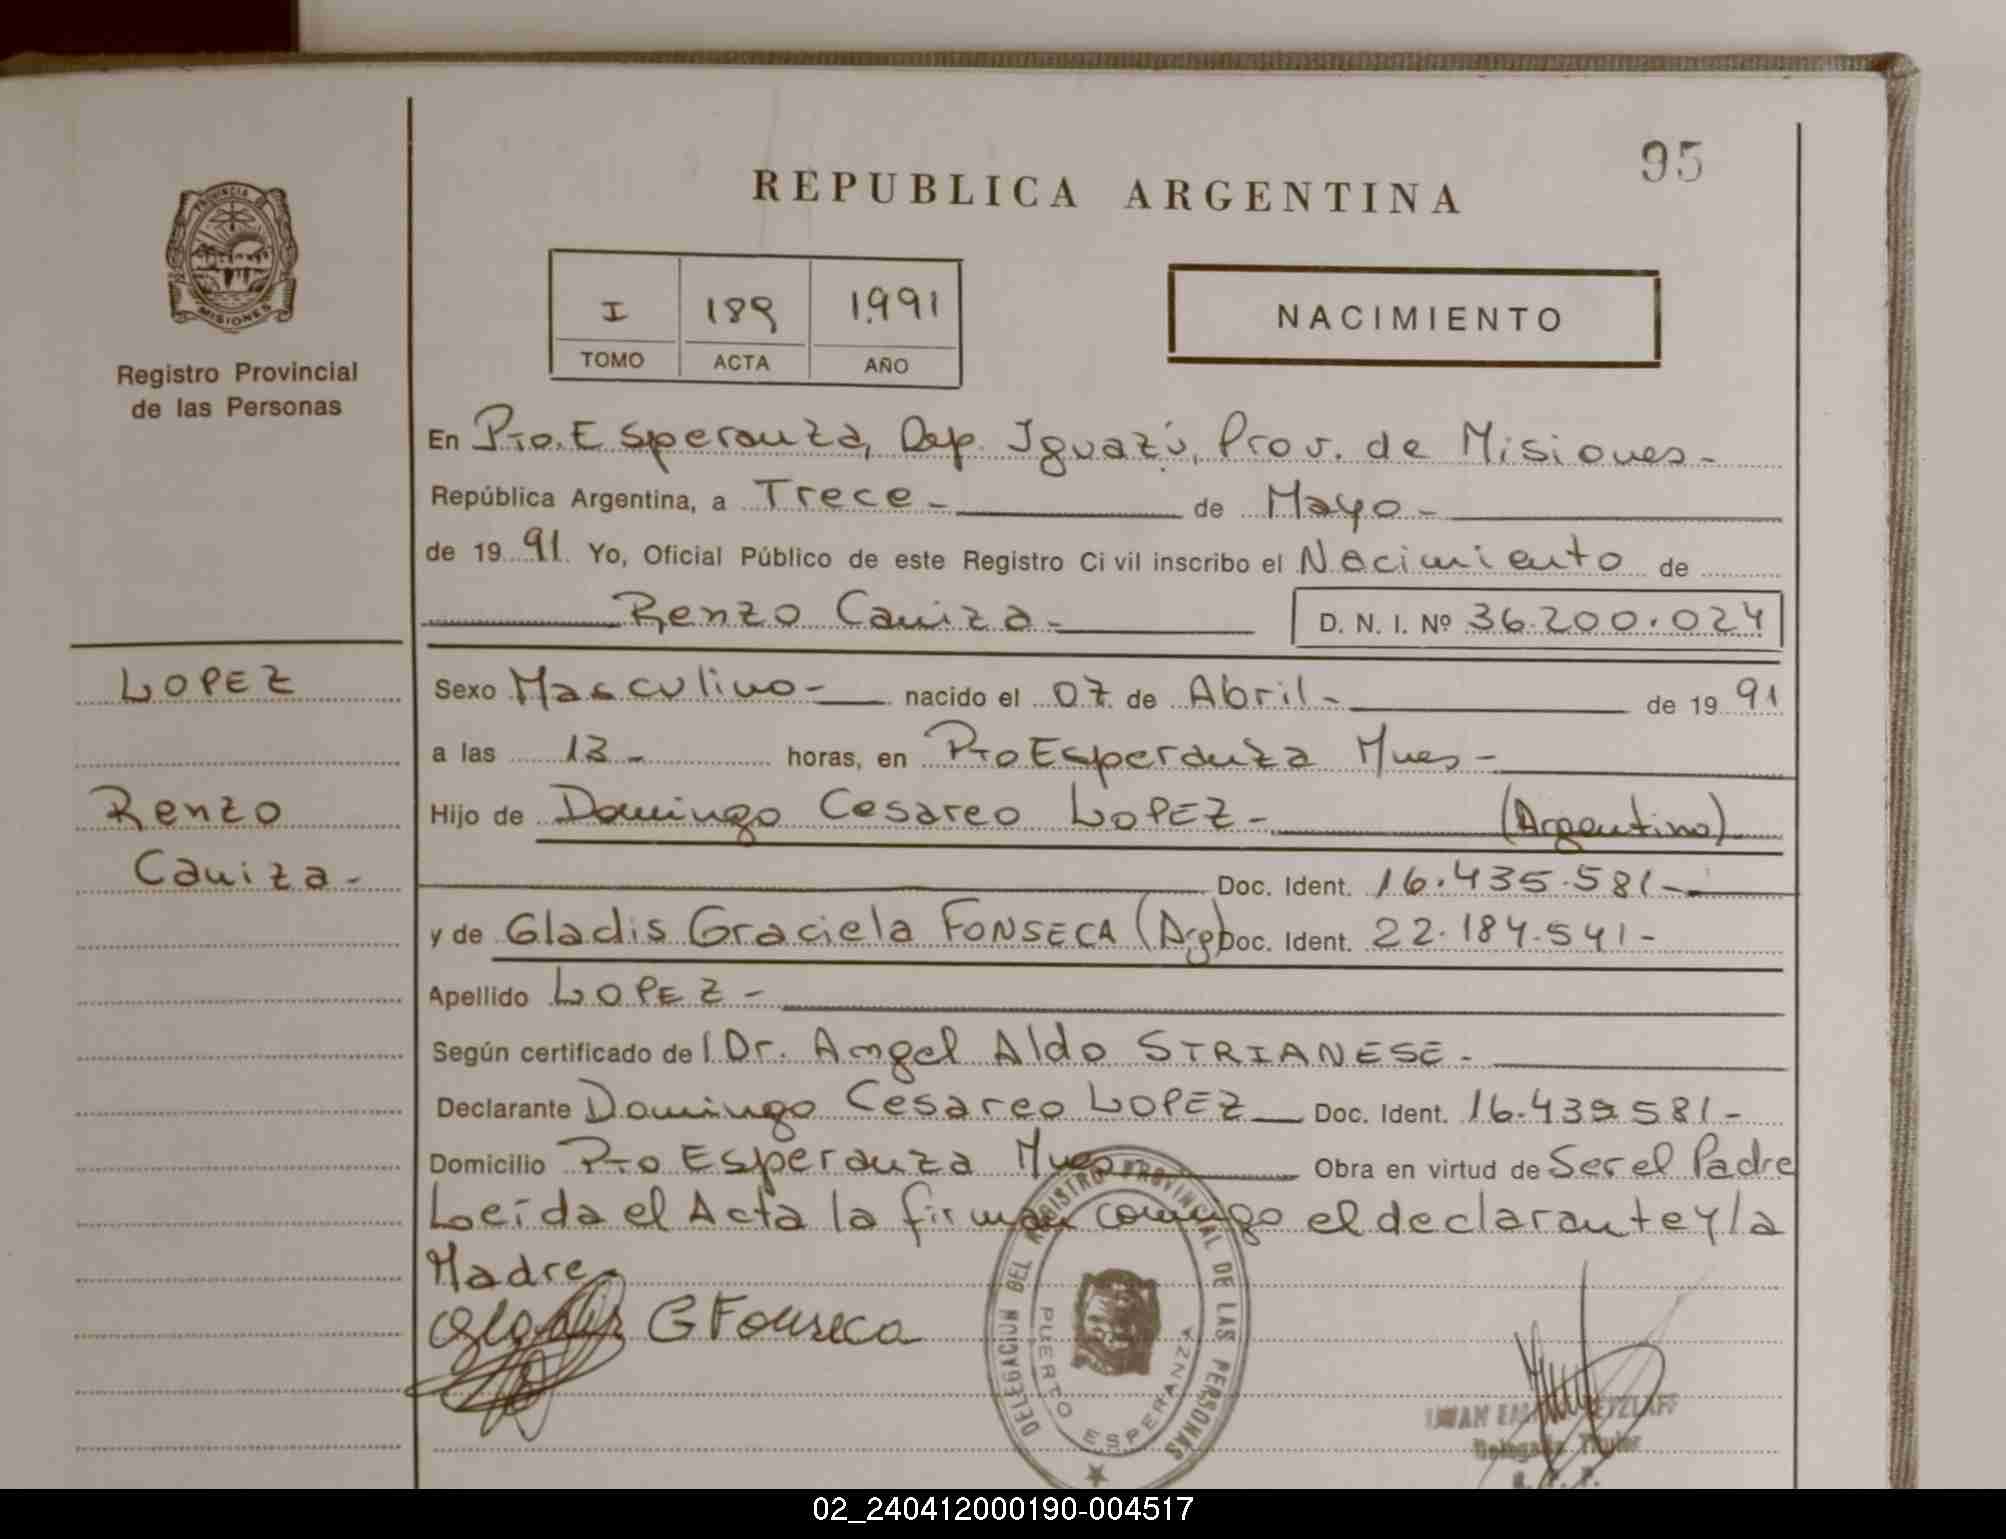 95
REPUBLICA ARGENTINA
PROVINCIA DE
MISIONES
Registro Provincial
de las Personas
I 189 1.991
TOMO ACTA AÑO
NACIMIENTO
En Pto. Esperanza, Dep. Iguazú, Prov. de Misiones-
República Argentina, a Trece- de Mayo-
de 19 91 Yo, Oficial Público de este Registro Civil inscribo el Nacimiento de
Renzo Caniza- D. N. I. Nº 36.200.024
LOPEZ
Renzo
Caniza-
Sexo Masculino- nacido el 07 de Abril- de 19 91
a las 13- horas, en Pto Esperanza Mnes-
Hijo de Domingo Cesareo LOPEZ- (Argentino)
Doc. Ident. 16.435.581-
y de Gladis Graciela FONSECA (Arg) Doc. Ident. 22.184.541-
Apellido LOPEZ-
Según certificado de l Dr. Angel Aldo STRIANESE-
Declarante Domingo Cesareo LOPEZ Doc. Ident. 16.435.581-
Domicilio Pto Esperanza Mnes- Obra en virtud de Ser el Padre
Leída el Acta la firman conmigo el declarante y la
Madre-
Gladis G Fonseca
DELEGACION DEL REGISTRO PROVINCIAL DE LAS PERSONAS
PUERTO ESPERANZA
Delegado Titular
R. P. P.
02_240412000190-004517